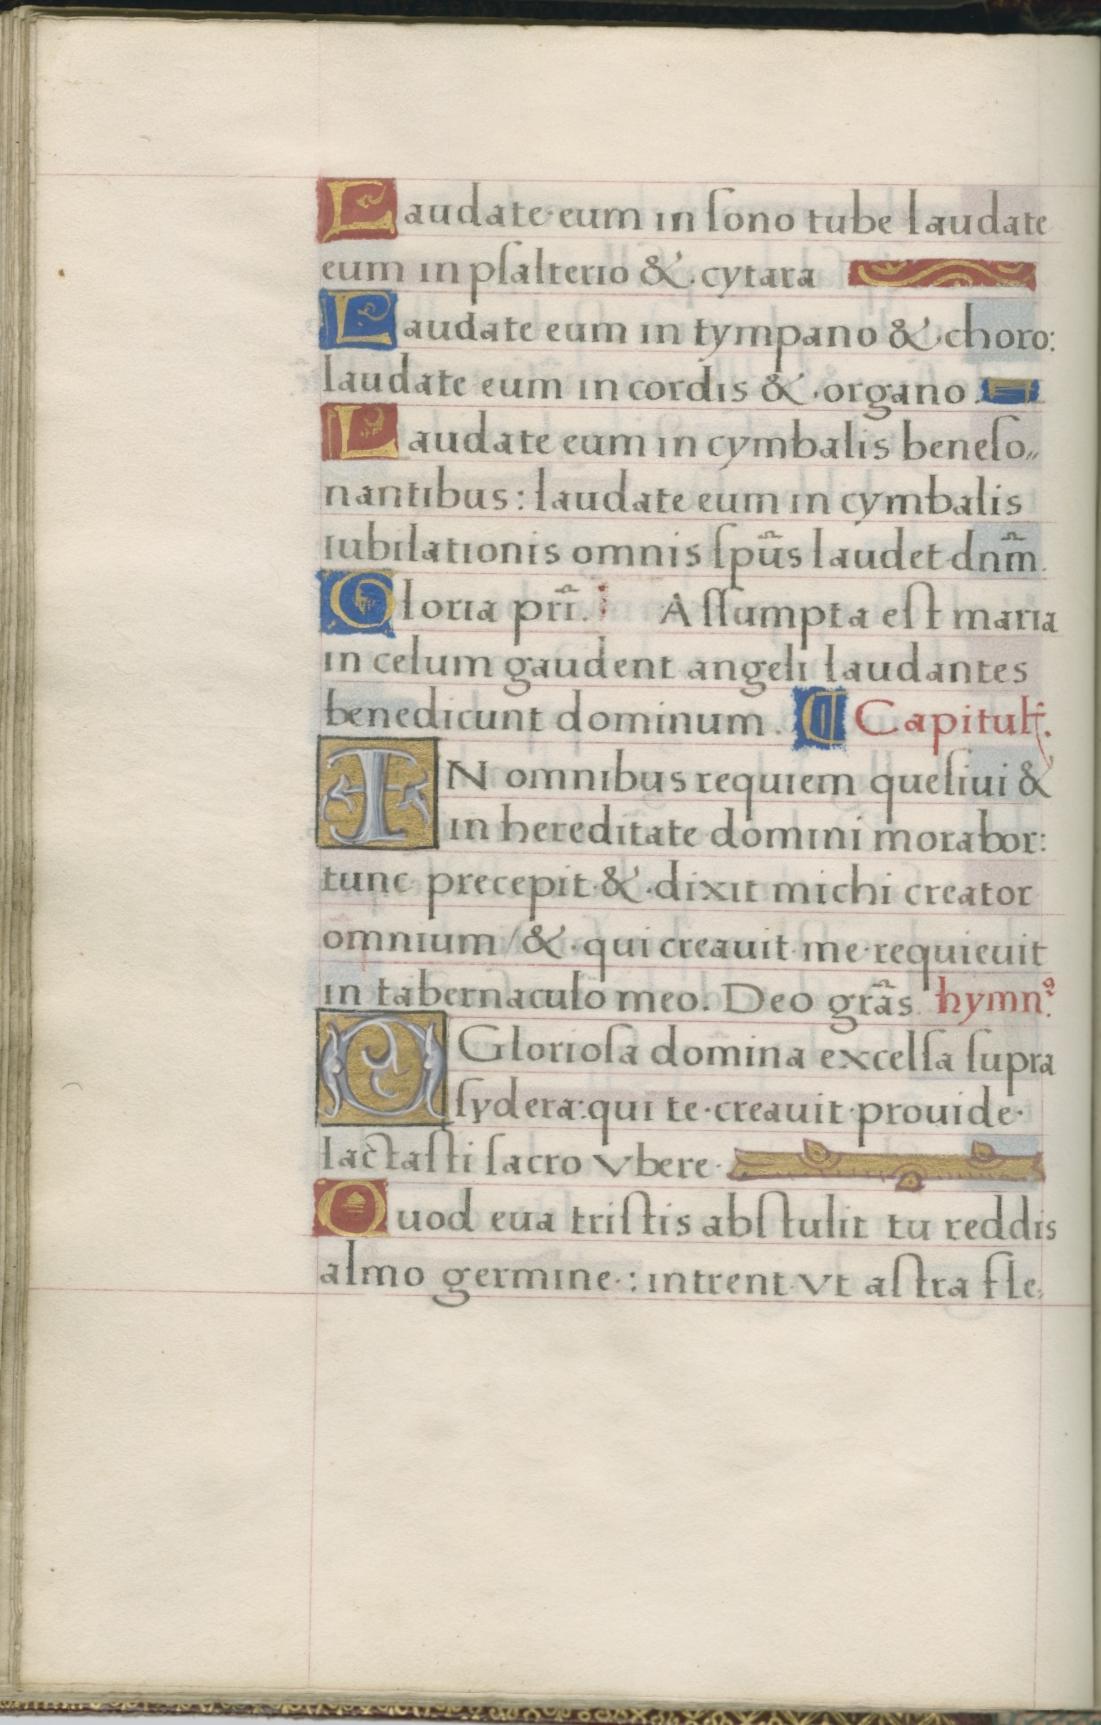 Laudate eum in ſono tube laudate
eum in pſalterio & cytara
Laudate eum in tympano & choro:
laudate eum in cordis & organo.
Laudate eum in cymbalis beneſo„
nantibus: laudate eum in cymbalis
iubilationis omnis ſpūs laudet dnm̄.
Gloria prī. Aſſumpta eſt maria
in celum gaudent angeli laudantes
benedicunt dominum. ¶ Capitul̄.
IN omnibus requiem queſiui &
in hereditate domini morabor:
tunc precepit & dixit michi creator
omnium / & qui creauit me requieuit
in tabernaculo meo. Deo grās. hymnꝰ.
O Glorioſa domina excelſa ſupra
ſydera: qui te creauit prouide
lactaſti ſacro vbere
Quod eua triſtis abſtulit tu reddis
almo germine: intrent vt aſtra fle„